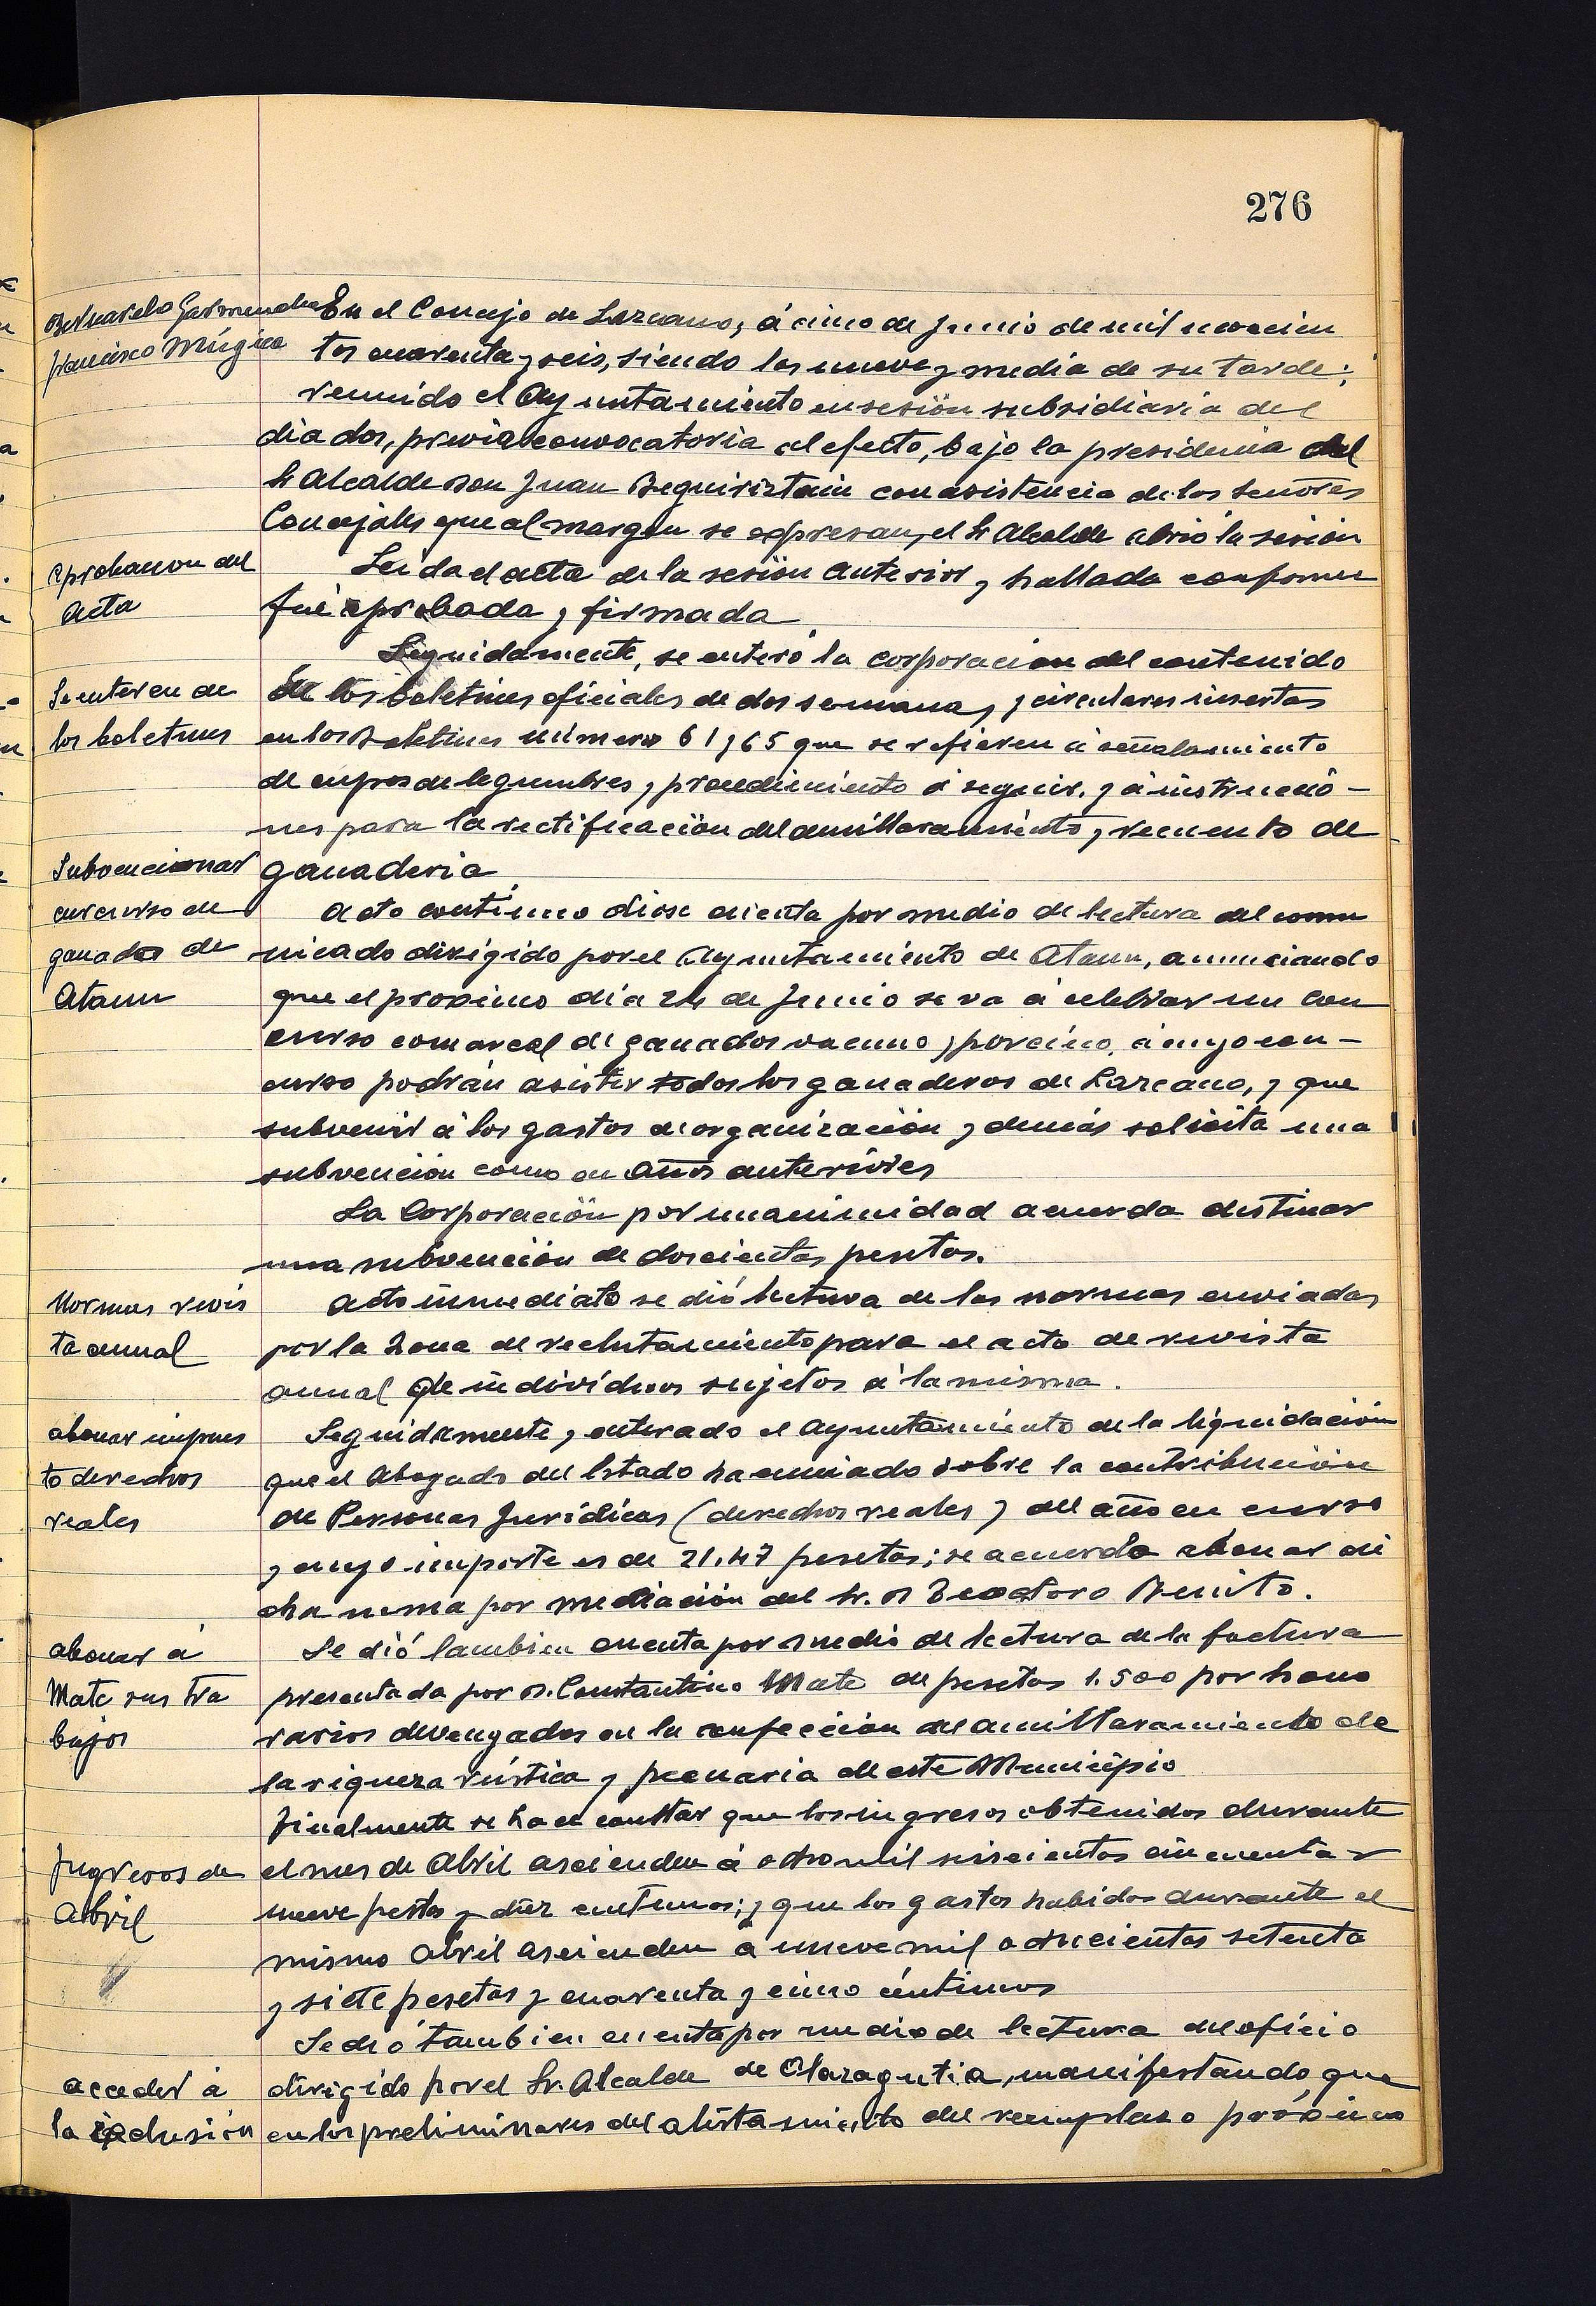 276
Bernardo Garmendia
Francisco Múgica
En el Concejo de Lazcano, á cinco de Junio de mil novecien
tos cuarenta y seis, siendo las nueve y media de su tarde;
reunido el Ayuntamiento en sesión subsidiaria del
dia dos, previa convocatoria al efecto, bajo la presidencia del
Sr Alcalde Don Juan Beguiristain con asistencia de los señores
Concejales que al margen se expresan, el Sr Alcalde abrió la sesión
Aprobacion del
Acta
Leida el acta de la sesión anterior y hallada conforme
fué aprobada y firmada
Seguidamente, se enteró la corporación del contenido
Se enteren de
los boletines
de los boletines oficiales de dos semanas, y circulares insertas
en los boletines número 61 y 65 que se refieren á señalamiento
de cupos de legumbres y procedimiento á seguir, y á instruccio-
nes para la rectificación del amillaramiento y recuento de
ganaderia
Subvencionar
concurso de
ganados de
Ataun
Acto continuo diose cuenta por medio de lectura del comu
nicado dirigido por el Ayuntamiento de Ataun, anunciando
que el proximo día 24 de Junio se va á celebrar un con
curso comarcal de ganados vacuno y porcino, á cuyo con-
curso podrán asistir todos los ganaderos de Lazcano, y que
subvenir á los gastos de organización y demás solicita una
subvención como en años anteriores
La Corporación por unanimidad acuerda destinar
una subvención de doscientas pesetas.
Normas revis
ta anual
Acto inmediato se dió lectura de las normas enviadas
por la Zona de reclutamiento para el acto de revista
anual de individuos sujetos á la misma.
abonar impues
to derechos
reales
Seguidamente, enterado el Ayuntamiento de la liquidación
que el Abogado del Estado ha enviado sobre la contribución
de Personas Jurídicas (derechos reales) del año en curso
y cuyo importe es de 21.47 pesetas; se acuerda abonar di
cha suma por mediación del Sr. D Teodoro Benito.
abonar á
Mate sus tra
bajos
Se dió tambien cuenta por medio de lectura de la factura
presentada por D. Constantino Mate de pesetas 1.500 por hono
rarios devengados en la confección del amillaramiento de
la riqueza rústica y pecuaria de este Municipio
Ingresos de
Abril
Finalmente se hace constar que los ingresos obtenidos durante
el mes de Abril ascienden á ocho mil seiscientas cincuenta y
nueve pestas y diez centimos; y que los gastos habidos durante el
mismo Abril ascienden á nueve mil ochocientas setenta
y siete pesetas y cuarenta y cinco céntimos
acceder á
la inclusión
Se dió tambien cuenta por medio de lectura del oficio
dirigido por el Sr. Alcalde de Olazagutia, manifestando que
en los preliminares del alistamiento del reemplazo próximo